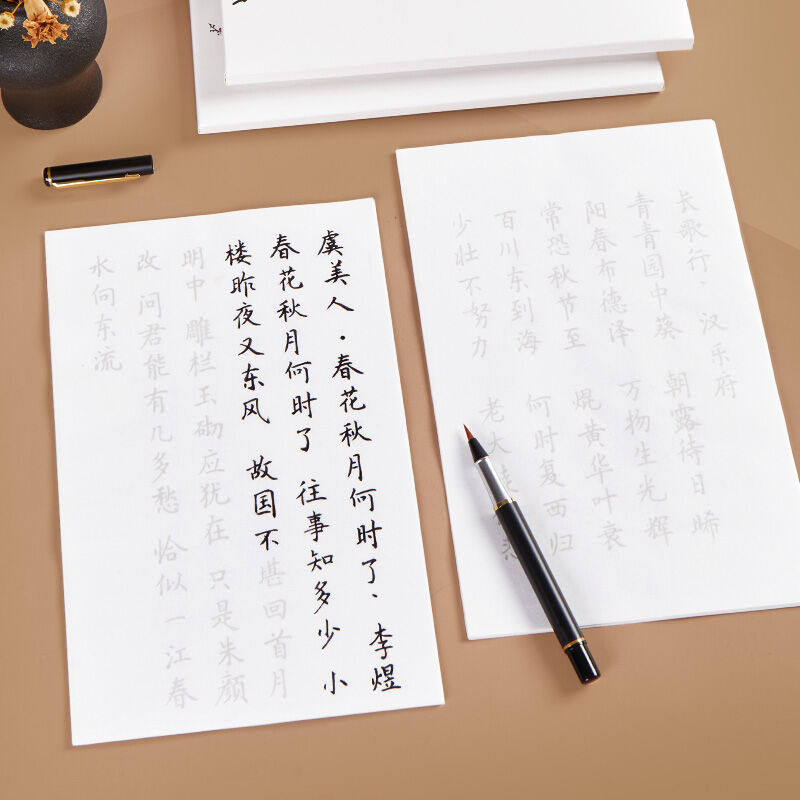 虞美人·春花秋月何时了、李煜
春花秋月何时了 往事知多少 小
楼昨夜又东风 故国不堪回首月
明中 雕栏玉砌应犹在 只是朱颜
改 问君能有几多愁 恰似一江春
水向东流
长歌行、汉乐府
青青园中葵 朝露待日晞
阳春布德泽 万物生光辉
常恐秋节至 焜黄华叶衰
百川东到海 何时复西归
少壮不努力 老大徒悲